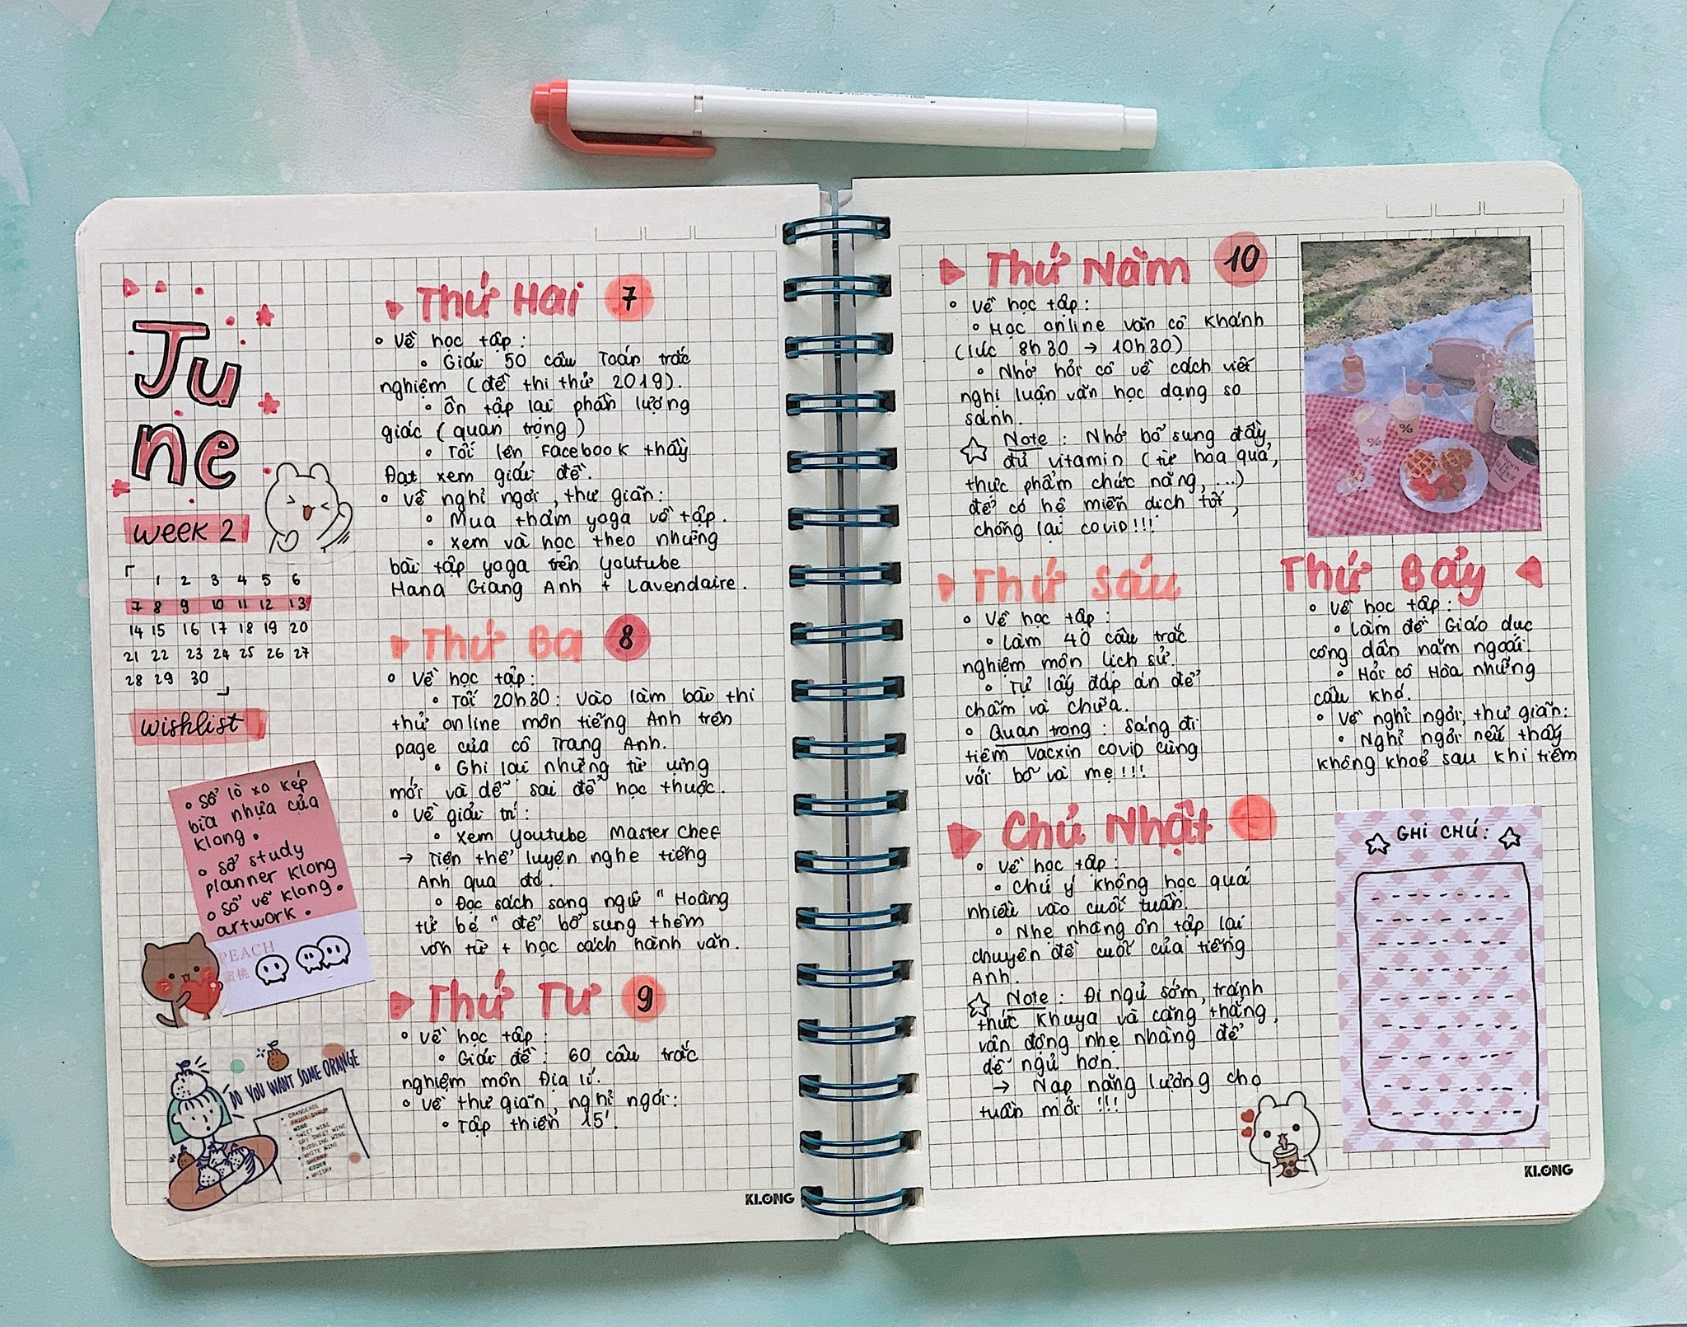 Ju
ne
week 2
1 2 3 4 5 6
7 8 9 10 11 12 13
14 15 16 17 18 19 20
21 22 23 24 25 26 27
28 29 30
wishlist
• Sổ lò xo kép
bìa nhựa của
Klong.
• Sổ study
planner Klong
• Sổ vẽ Klong.
artwork.
PEACH
蜜桃
DO YOU WANT SOME ORANGE
Thứ Hai 7
• Về học tập:
• Giải 50 câu Toán trắc
nghiệm (đề thi thử 2019).
• Ôn tập lại phần lượng
giác (quan trọng)
• Tối lên Facebook thầy
Đạt xem giải đề.
• Về nghỉ ngơi, thư giãn:
• Mua thảm yoga về tập.
• Xem và học theo những
bài tập yoga trên youtube
Hana Giang Anh + Lavendaire.
Thứ Ba 8
• Về học tập:
• Tối 20h30: Vào làm bài thi
thử online môn tiếng Anh trên
page của cô Trang Anh.
• Ghi lại những từ vựng
mới và dễ sai để học thuộc.
• Về giải trí:
• Xem youtube Master Chef
→ Tiện thể luyện nghe tiếng
Anh qua đó.
• Đọc sách song ngữ "Hoàng
tử bé" để bổ sung thêm
vốn từ + học cách hành văn.
Thứ Tư 9
• Về học tập:
• Giải đề: 60 câu trắc
nghiệm môn Địa lí.
• Về thư giãn nghỉ ngơi:
• Tập thiền 15'.
KLONG
Thứ Năm 10
• Về học tập:
• Học online văn cô Khánh
(lúc 8h30 → 10h30)
• Nhớ hỏi cô về cách viết
nghị luận văn học dạng so
sánh.
☆ Note: Nhớ bổ sung đầy
đủ vitamin (từ hoa quả,
thực phẩm chức năng,...)
để có hệ miễn dịch tốt,
chống lại covid!!!
Thứ Sáu
• Về học tập:
• Làm 40 câu trắc
nghiệm môn lịch sử.
• Tự lấy đáp án để
chấm và chữa.
• Quan trọng: Sáng đi
tiêm vacxin covid cùng
với bố và mẹ!!!
Chủ Nhật
• Về học tập:
• Chú ý không học quá
nhiều vào cuối tuần.
• Nhẹ nhàng ôn tập lại
chuyên đề cuối của tiếng
Anh.
☆ Note: Đi ngủ sớm, tránh
thức khuya và căng thẳng,
vận động nhẹ nhàng để
dễ ngủ hơn.
→ Nạp năng lượng cho
tuần mới!!!
Thứ Bảy
• Về học tập:
• Làm đề Giáo dục
công dân năm ngoái.
• Hỏi cô Hòa những
câu khó.
• Về nghỉ ngơi, thư giãn:
• Nghỉ ngơi nếu thấy
không khoẻ sau khi tiêm
☆ GHI CHÚ: ☆
KLONG